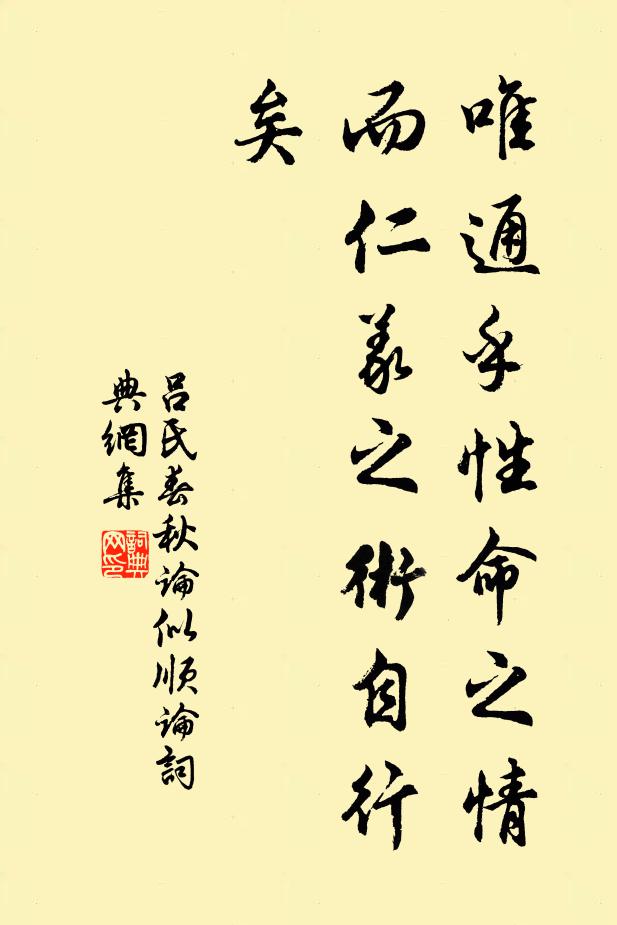 唯通乎性命之情
而仁義之術自行
矣
吕氏春秋論似順論詞
典網集
詞典网印